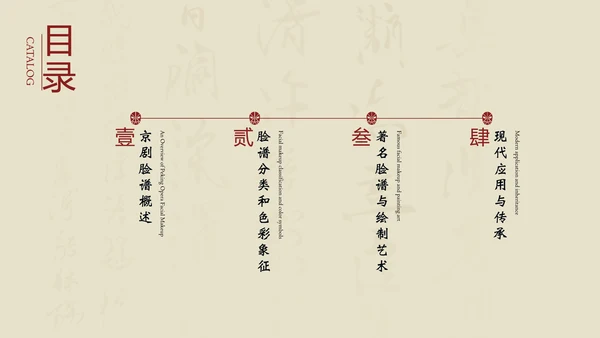 目录
CATALOG
壹
京剧脸谱概述
An Overview of Peking Opera Facial Makeup
贰
脸谱分类和色彩象征
Facial makeup classification and color symbols
叁
著名脸谱与绘制艺术
Famous facial makeup and painting art
肆
现代应用与传承
Modern application and inheritance